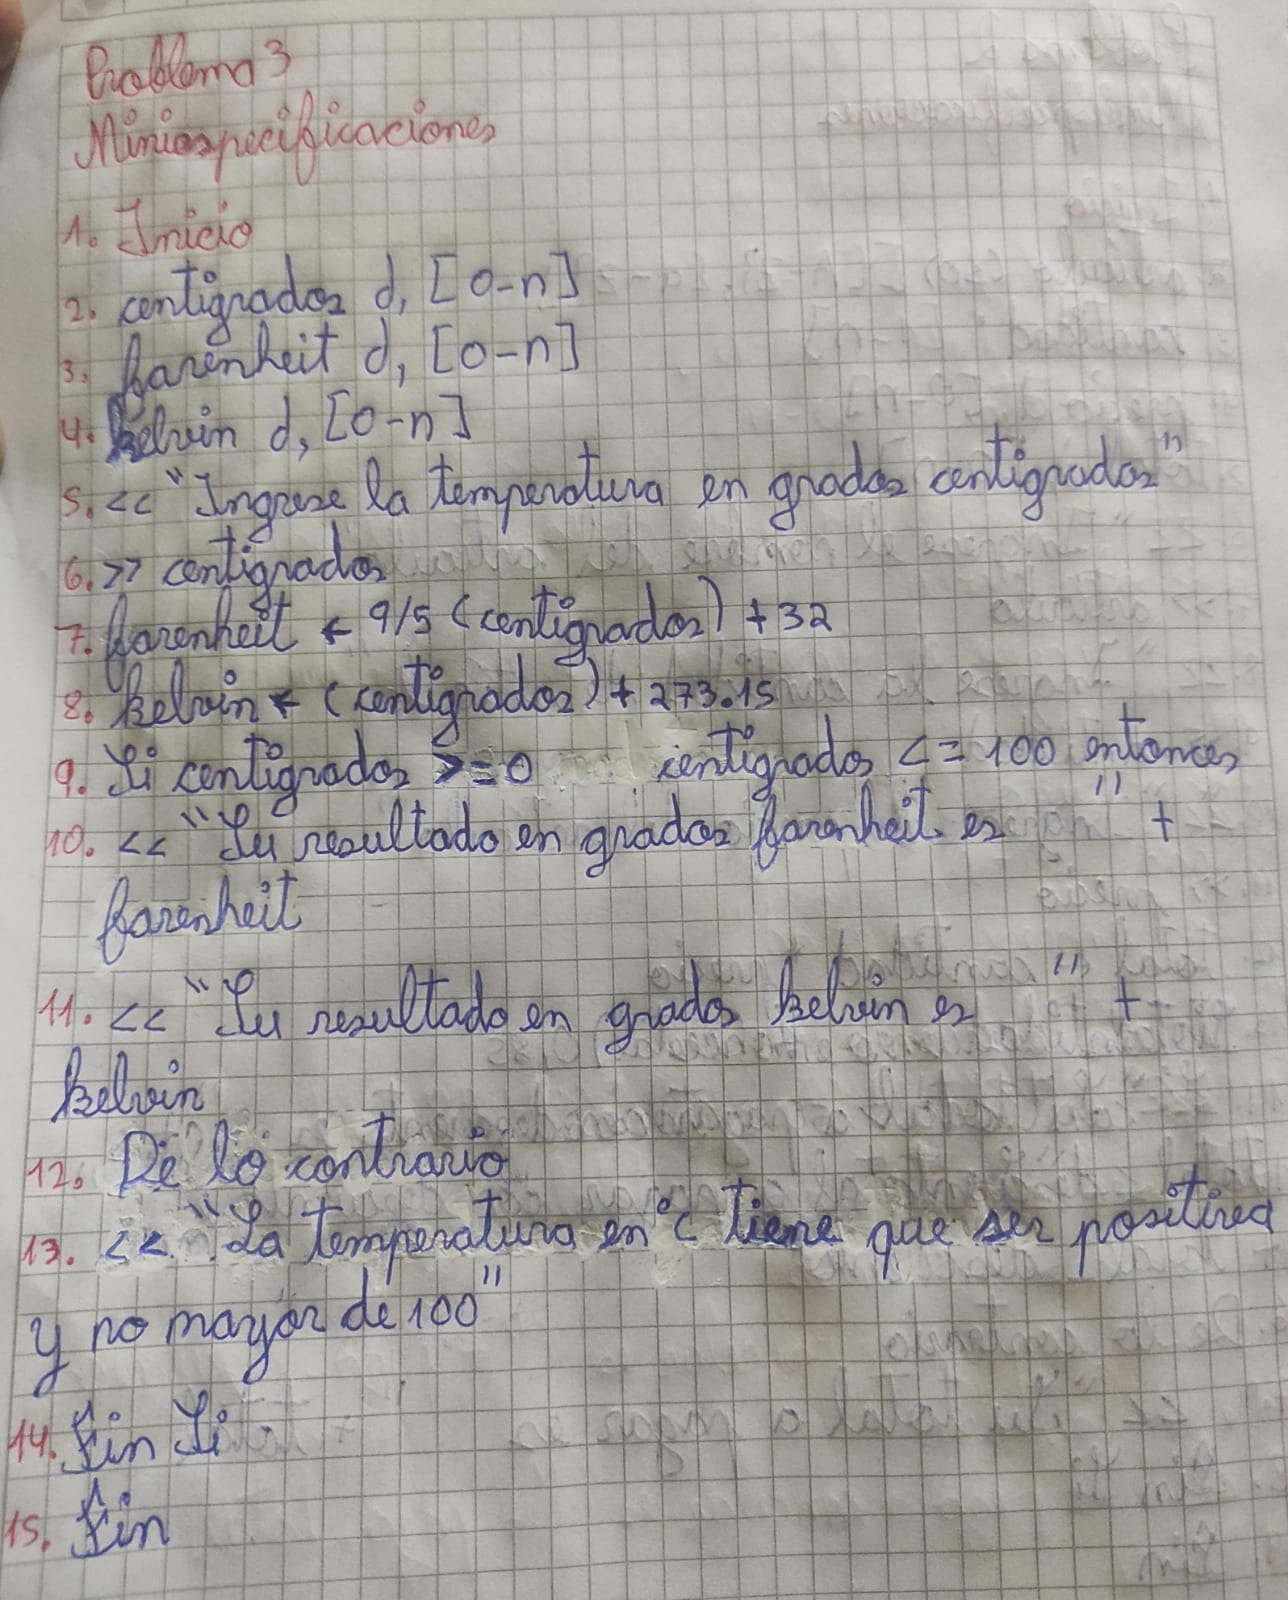 Problema 3
Miniespecificaciones
1. Inicio
2. centigrados d, [0-n]
3. farenheit d, [0-n]
4. kelvin d, [0-n]
5. << "Ingrese la temperatura en grados centigrados"
6. >> centigrados
7. farenheit ← 9/5 (centigrados) + 32
8. kelvin ← (centigrados) + 273.15
9. Si centigrados >= 0 centigrados <= 100 entonces
10. << "Su resultado en grados farenheit es " +
farenheit
11. << "Su resultado en grados kelvin es " +
kelvin
12. De lo contrario
13. << "La temperatura en °C tiene que ser positiva
y no mayor de 100"
14. Fin Si
15. Fin